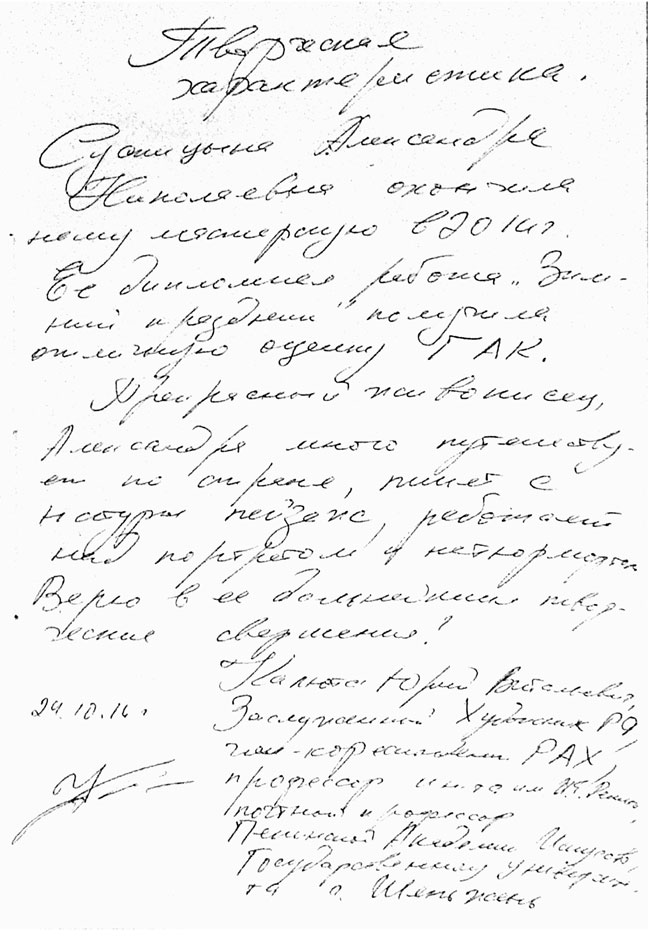 Творческая
характеристика.
Александра
Николаевна окончила
мою мастерскую в
Её дипломная работа „Зим-
ний праздник" получила
отличную оценку ГАК.
Прекрасный живописец,
Александра много путешеству-
ет по стране, пишет с
натуры пейзаж, работает
над портретом и натюрмортом
Верю в её дальнейшие твор-
ческие свершения!
Калюта Юрий Витальевич,
Заслуженный Художник РФ,
член-корреспондент РАХ,
профессор ин-та им. И.Е. Репина,
почётный профессор
Пекинской Академии Искусств,
Государственного университе-
та г. Шеньжень